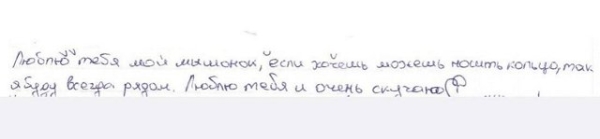 Люблю тебя мой мышонок, если хочешь можешь носить кольцо, так
я буду всегда рядом. Люблю тебя и очень скучаю